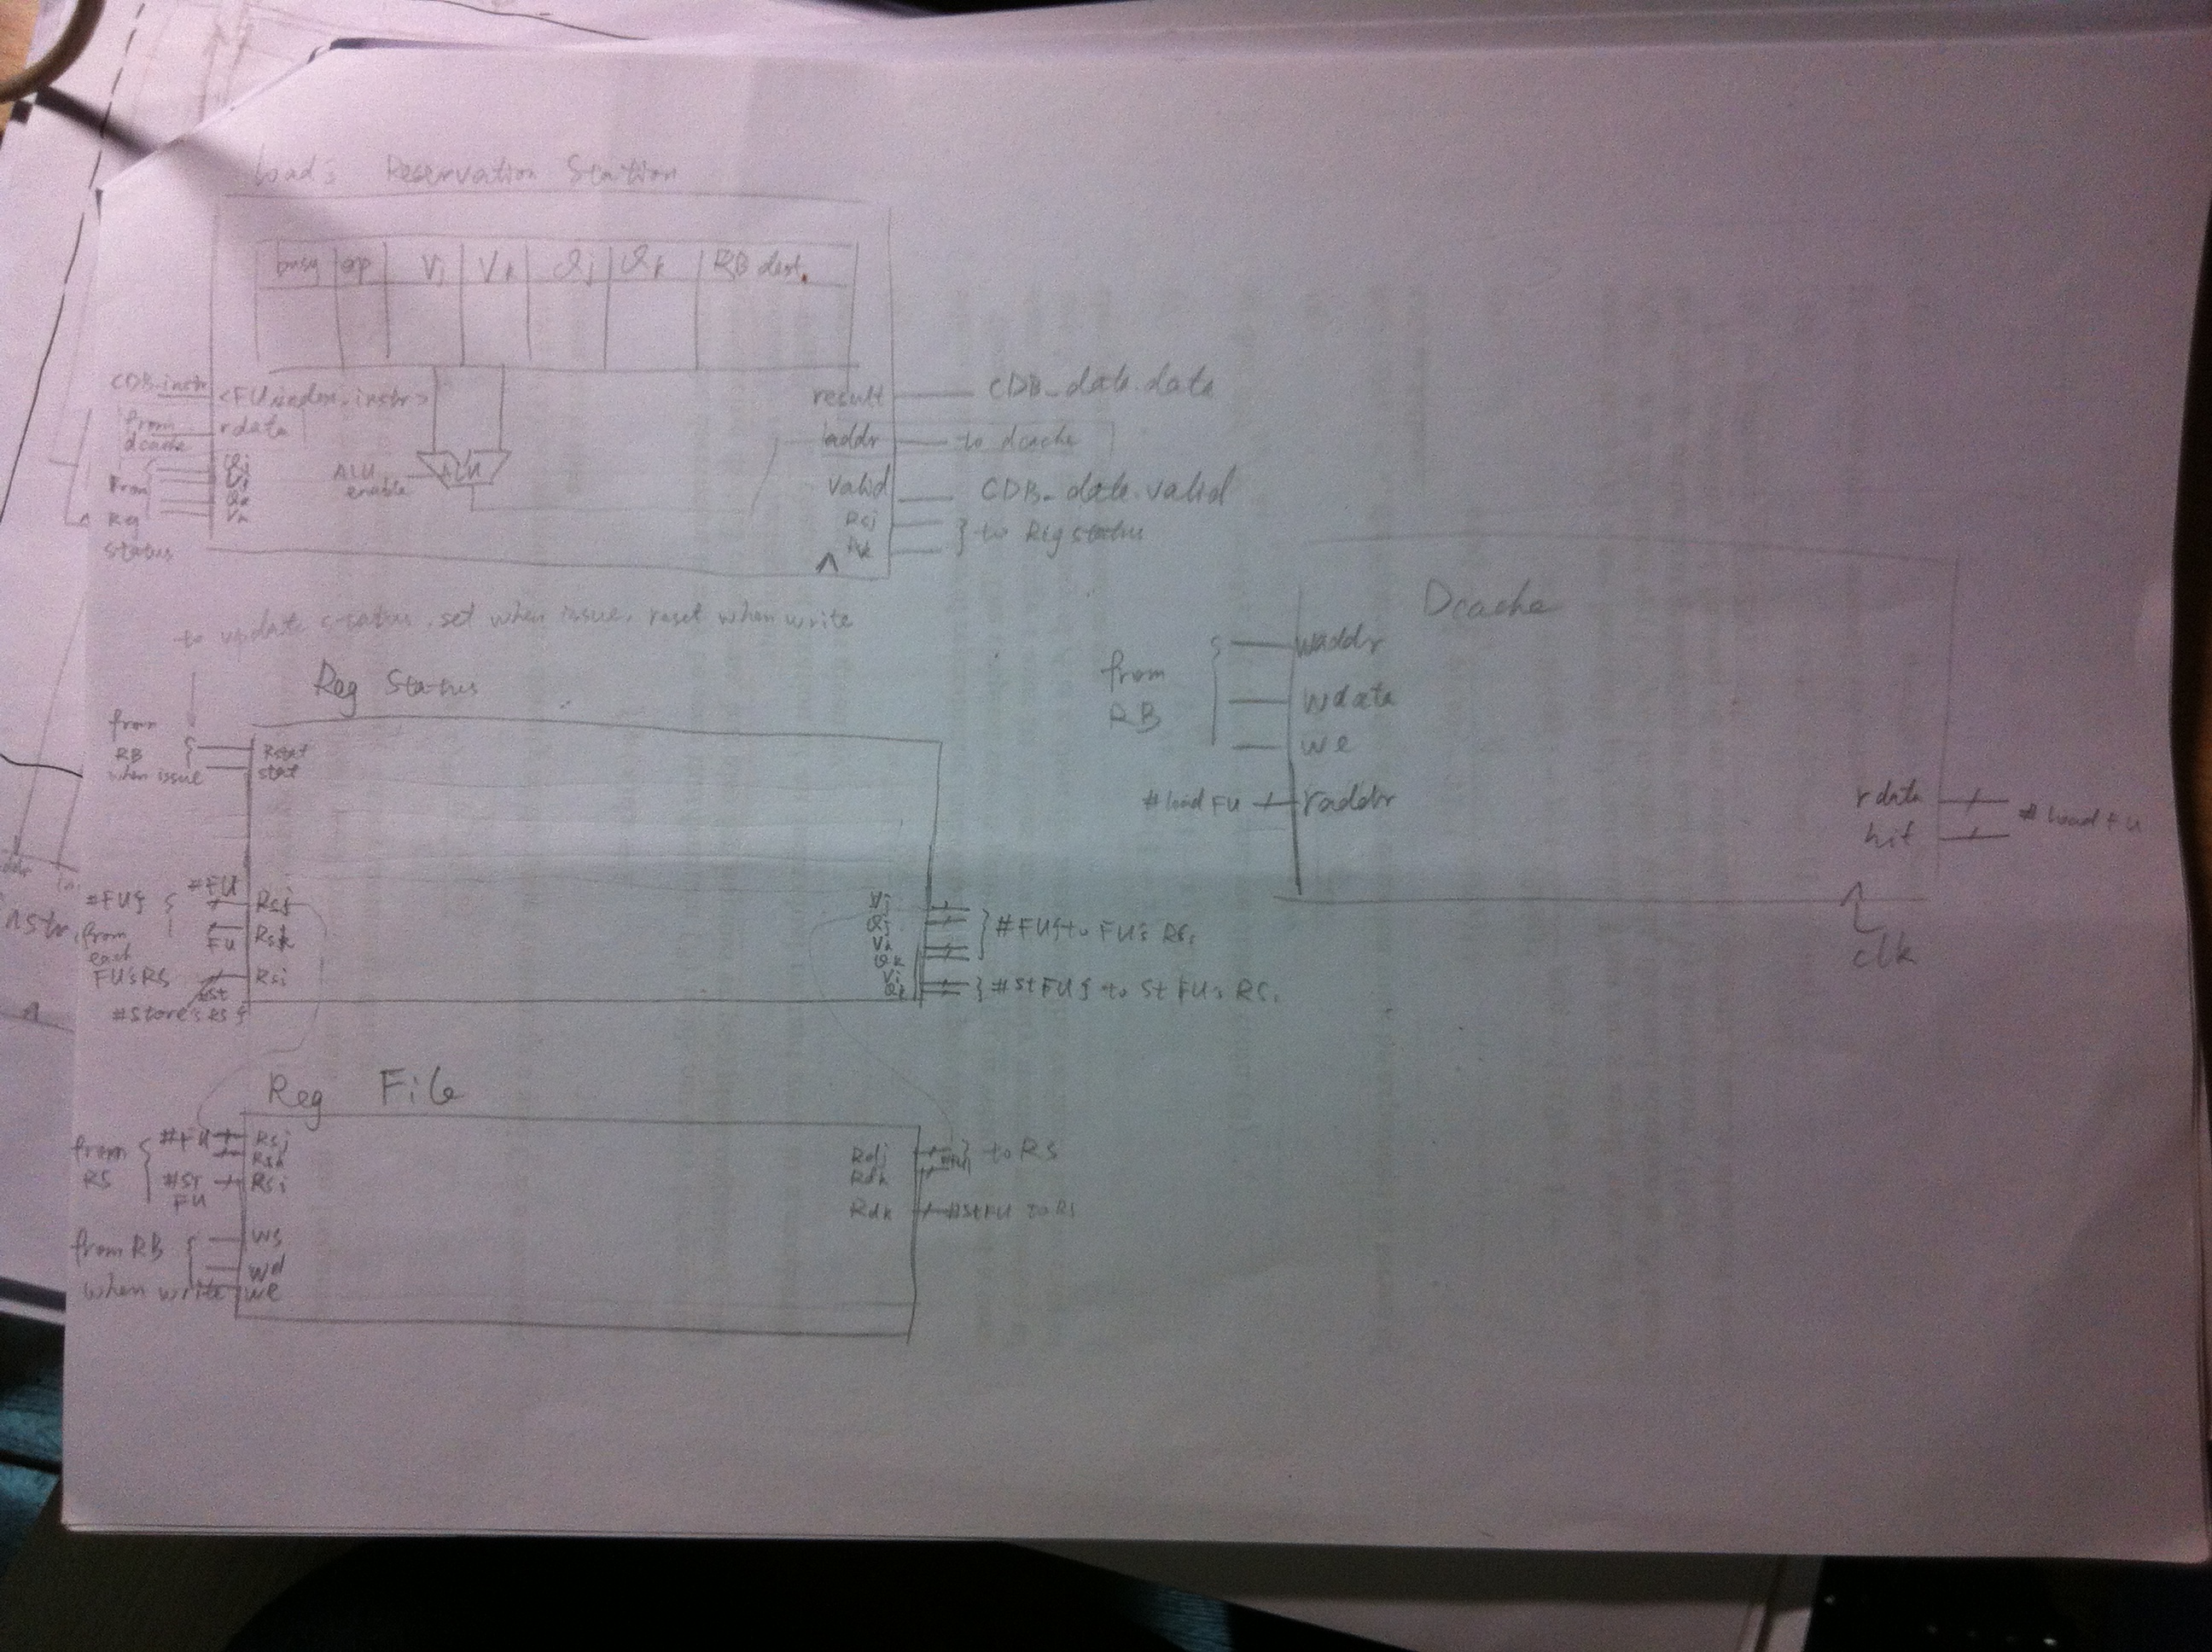 Load's Reservation Station
busy op Vj Vk Qj Qk RB dest.
CDB-instr
<FU index, instr>
from
dcache
rdata
From
Reg
status
Qj
Vj
Qk
Vk
ALU
enable
ALU
result CDB_data.data
addr to dcache
valid CDB_data.valid
Rsj
Rk
} to Reg status
to update status, set when issue, reset when write
Reg Status
from
RB
when issue
Rstat
stat
#FU {
from
each
FU's RS
#store's RS {
#FU Rsj
FU Rsk
#St Rsi
Vj
Qj
Vk
Qk
Vi
Qi
} #FU { to FU's RS.
} #St FU { to St FU's RS.
Reg File
from
RS
#FU Rsj
Rsk
#ST
FU
Rsi
from RB
when write
ws
wd
we
Rdj
Rdk
#FU } to RS
Rdk #St FU to RS
Dcache
from
RB
waddr
wdata
we
#load FU raddr
rdata
hit
#load FU
clk